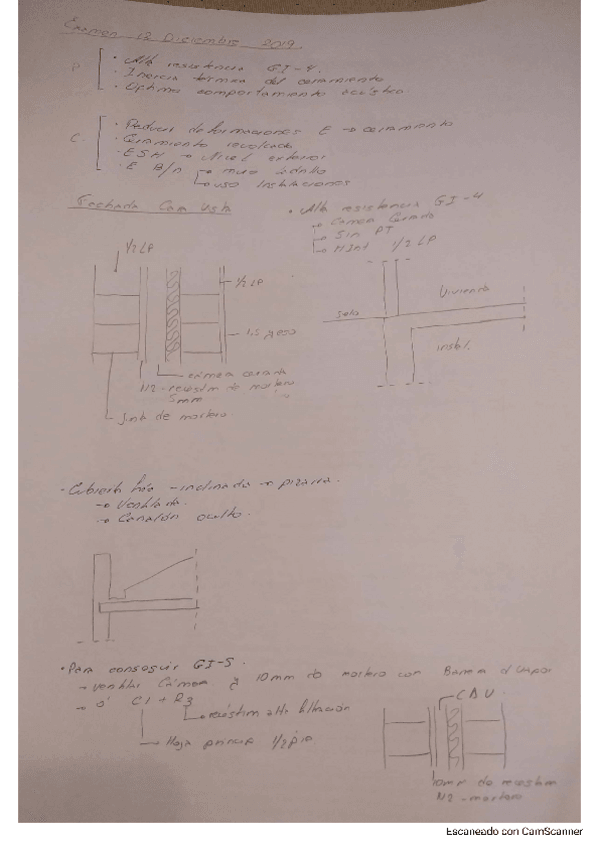 Examen 12 Diciembre 2019.
P
• Alta resistencia GI-4.
• Inercia térmica del cerramiento
• Optimo comportamiento acústico
C
• Reducir deformaciones E → cerramiento
• Cerramiento revocado
• ESH → Nivel exterior
• E B/n → muro ladrillo
→ uso Instalaciones
Fachada Cara Vista
• Alta resistencia GI-4
→ Cámara Cerrada
→ Sin PT
→ HInt 1/2 LP
1/2 LP
1/2 LP
1,5 yeso
cámara cerrada
N2 - revestim de mortero
5mm
Junta de mortero
Vivienda
Instal.
• Cubierta fría - inclinada → pizarra.
→ Ventilada.
→ Canalón oculto.
• Para conseguir GI-5.
→ Ventilar Cámara 10mm de mortero con Barrera d'vapor
→ o' C1 + R3
→ revéstim alta filtración
Hoja princip 1/2 pie
CDV
10mm de revestim
N2 - mortero
Escaneado con CamScanner